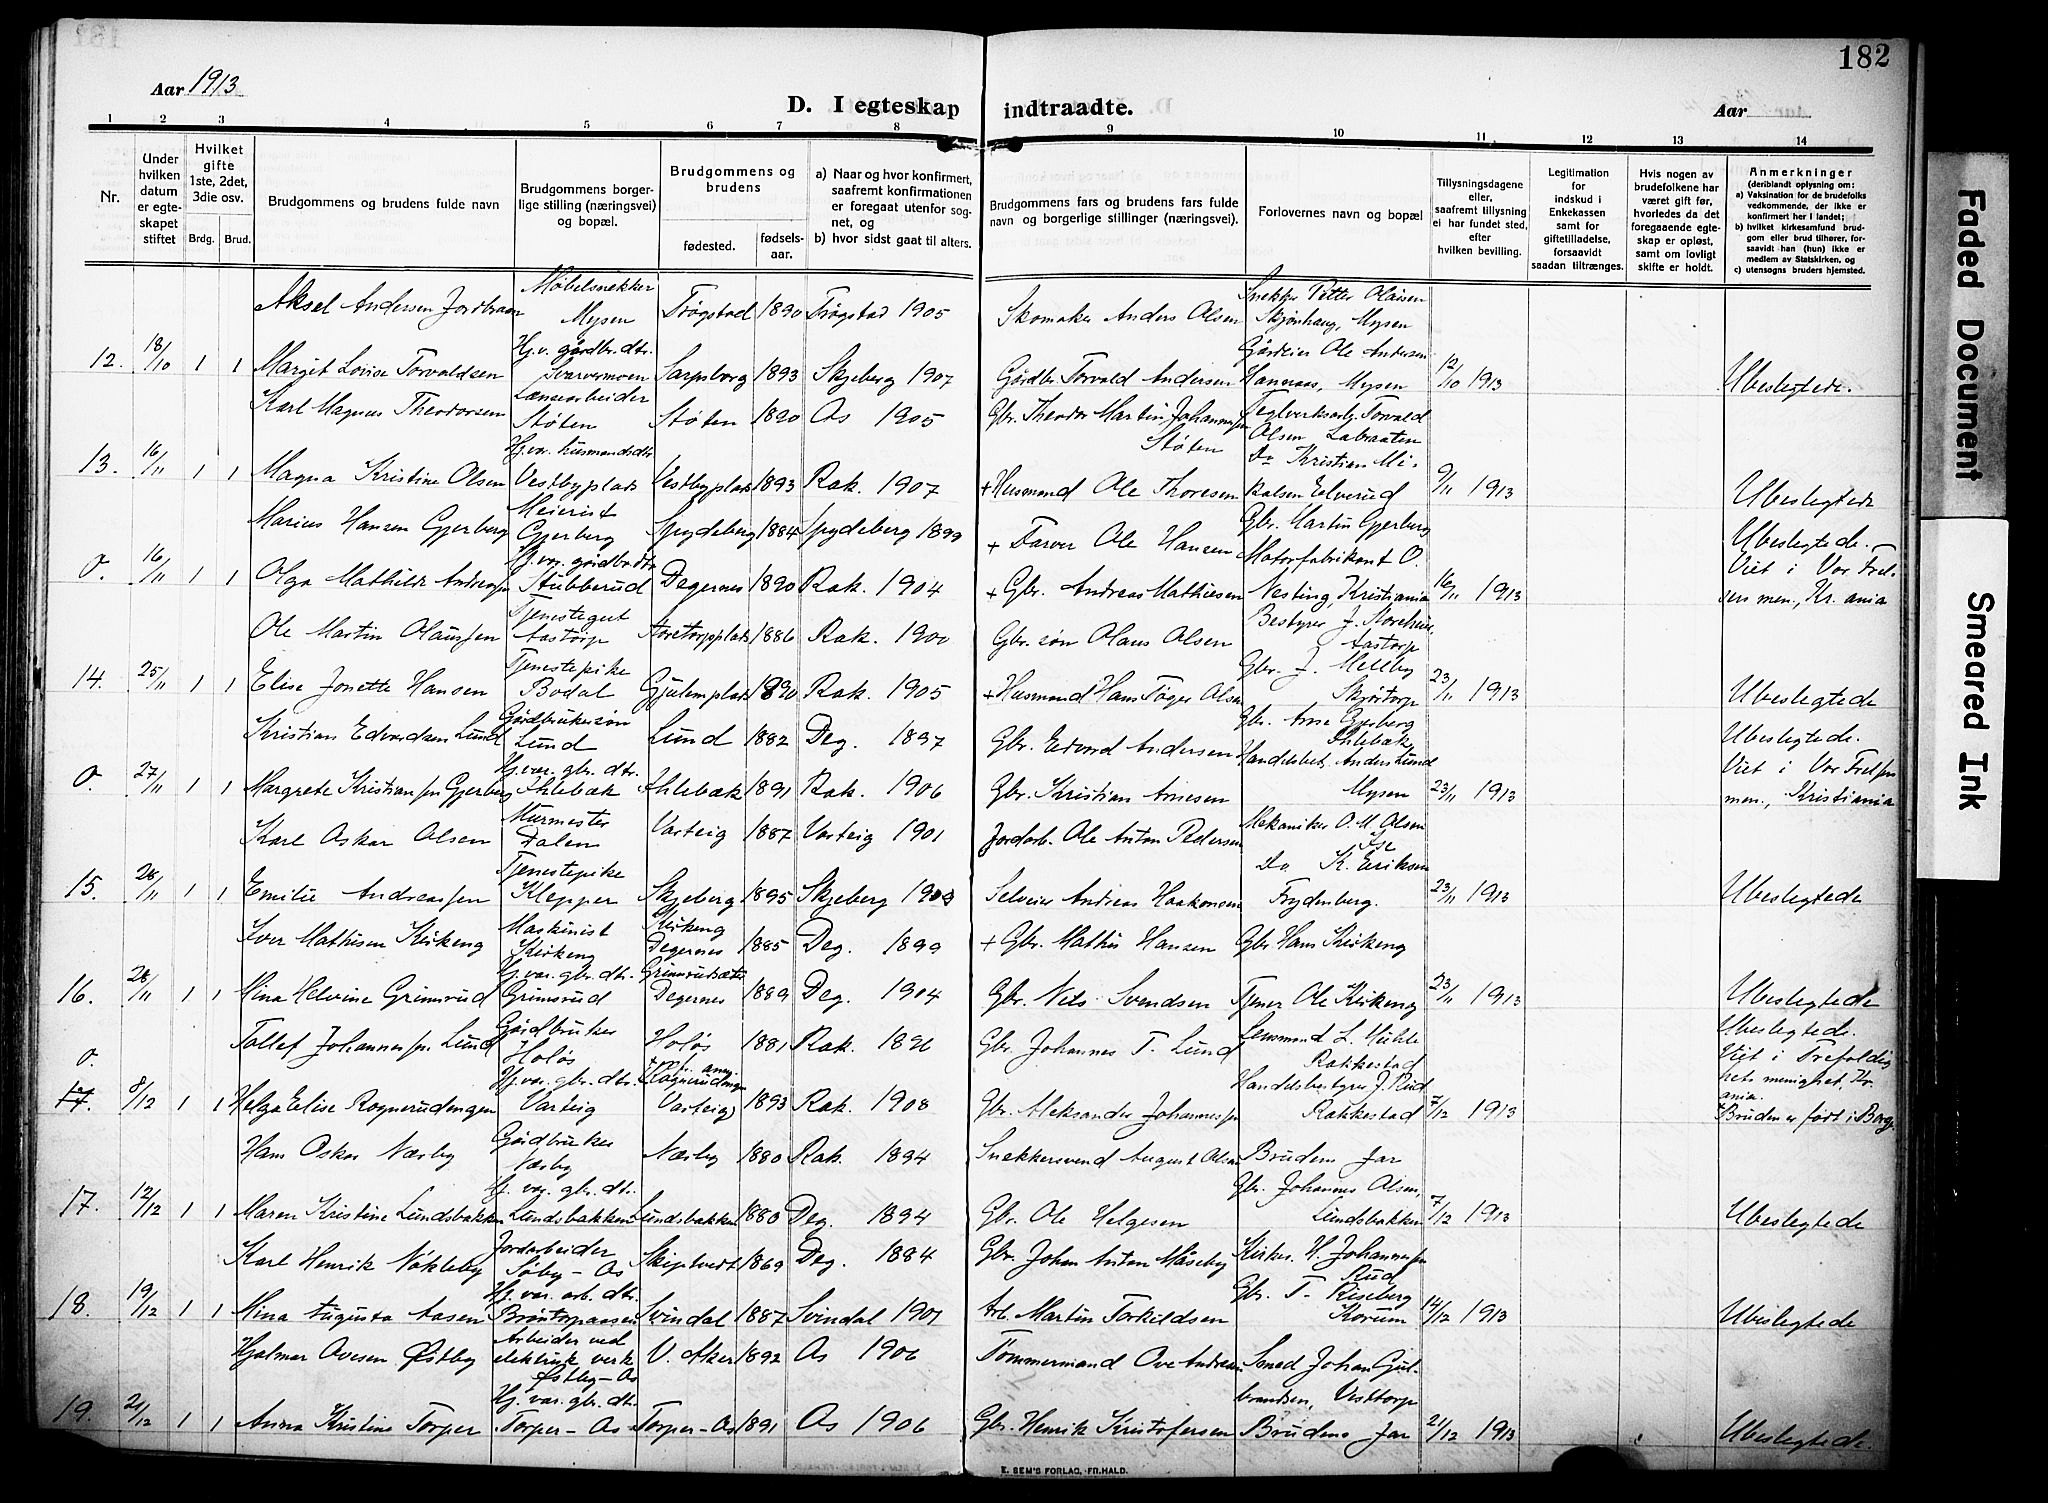 182
Aar 1913
D. I egteskap indtraadte.
Aar
1 2 3 4 5 6 7 8 9 10 11 12 13 14
Nr.
Under hvilken datum er egteskapet stiftet
Hvilket gifte 1ste, 2det, 3die osv.
Brdg. Brud.
Brudgommens og brudens fulde navn
Brudgommens borgerlige stilling (næringsvei) og bopæl.
Brudgommens og brudens
fødested. fødselsaar.
a) Naar og hvor konfirmert, saafremt konfirmationen er foregaat utenfor sognet, og
b) hvor sidst gaat til alters.
Brudgommens fars og brudens fars fulde navn og borgerlige stillinger (næringsvei).
Forlovernes navn og bopæl
Tillysningsdagene eller, saafremt tillysning ei har fundet sted, efter hvilken bevilling.
Legitimation for indskud i Enkekassen samt for giftetilladelse, forsaavidt saadan tiltrænges.
Hvis nogen av brudefolkene har været gift før, hvorledes da det foregaaende egteskap er opløst, samt om lovligt skifte er holdt.
Anmerkninger (deriblandt oplysning om: a) Vaksination for de brudefolks vedkommende, der ikke er konfirmert her i landet; b) hvilket kirkesamfund brudgom eller brud tilhører, forsaavidt han (hun) ikke er medlem av Statskirken, og c) utensogns bruders hjemsted.
Aksel Andersen Jordbraaten Møbelsnekker Mysen Trøgstad 1890 Trøgstad 1905 Skomaker Anders Olsen Snekker Petter Olaisen Skjønhaug, Mysen
12. 18/10 1 1 Margit Lovise Torvaldsen Hj.v. gårdbr. dtr. Svarvermoen Sarpsborg 1893 Skjeberg 1907 Gårdbr. Torvald Andersen Gårdeier Ole Andersen Hannaas, Mysen 12/10 1913 Ubeslegtede.
Karl Magnus Theodorsen Lænsearbeider Støten Støten 1890 Os 1905 Gbr. Theodor Martin Johannessen Støten Teglverksarb. Torvald Olsen Labraaten
13. 16/11 1 1 Magna Kristine Olsen Hj. var. husmandsdtr. Vestbyplads Vestbyplads 1893 Rak. 1907 + Husmand Ole Thoresen Do Kristian Mikalsen Elverud 9/11 1913 Ubeslegtede
Marius Hansen Gjerberg Meierist Gjerberg Spydeberg 1884 Spydeberg 1899 + Farver Ole Hansen Gbr. Martin Gjerberg
0. 16/11 1 1 Olga Mathilde Andreassen Hj. var. gårdbr.dtr. Stubberud Degernes 1890 Rak. 1904 + Gbr. Andreas Mathiesen Motorfabrikant O. Nesting, Kristiania 16/11 1913 Ubeslegtede. Viet i Vor Frelsers men., Kr.ania
Ole Martin Olaussen Tjenestegut Aastorp Aastorpplads 1886 Rak. 1900 Gbr. søn Olaus Olsen Bestyrer J. Storeheier, Aastorp
14. 25/11 1 1 Elise Jonette Hansen Tjenestepike Bodal Gjulemplads 1890 Rak. 1905 + Husmand Hans Tøger Olsen Gbr. J. Melleby Skjørtorp 23/11 1913 Ubeslegtede
Kristian Edvardsen Lund Gårdbrukersøn Lund Lund 1882 Deg. 1897 Gbr. Edvard Andersen Gbr. Arne Gjerberg Ihlebæk
0. 27/11 1 1 Margrete Kristiansen Gjerberg Hj. var. gbr. dtr. Ihlebæk Ihlebæk 1891 Rak. 1906 Gbr. Kristian Arnesen Handelsbet. Anders Lund Mysen 23/11 1913 Ubeslegtede. Viet i Vor Frelsers men., Kristiania
Karl Oskar Olsen Murmester Dalen Varteig 1887 Varteig 1901 Jordarb. Ole Anton Pedersen Mekaniker O. M. Olsen Ise
15. 28/11 1 1 Emilie Andreassen Tjenestepike Klepper Skjeberg 1895 Skjeberg 1909 Selveier Andreas Haakonsen Do K. Eriksen Frydenberg. 23/11 1913 Ubeslegtede
Iver Mathisen Kirkeng Maskinist Kirkeng Kirkeng Degernes 1885 Deg. 1899 + Gbr. Mathis Hansen Gbr Hans Kirkeng
16. 28/11 1 1 Mina Helvine Grimsrud Hj. var. gbr. dtr. Grimsrud Grimsrudsæter Degernes 1889 Deg. 1904 Gbr. Nils Svendsen Tjener Ole Kirkeng 23/11 1913 Ubeslegtede
Tollef Johannessen Lund Gårdbruker Holøs Holøs 1881 Rak. 1896 Gbr. Johannes T. Lund Lensmand L. Mühle Rakkestad
0. 17. 8/12 1 1 Helga Elise Rognerudengen Hj. var. gbr. dtr. Varteig Rognerudengen Varteig 1893 Rak. 1908 Gbr. Aleksander Johannessen Handelsbestyrer J. Rud Rakkestad 7/12 1913 Ubeslegtede. Viet i Trefoldighets menighet, Kr.ania. Bruden er født i Borge
Hans Oskar Nærby Gårdbruker Nærby Nærby 1880 Rak. 1894 Snekkersvend August Olsen Brudens far
17. 12/12 1 1 Maren Kristine Lundsbakken Hj. var. gbr. dtr. Lundsbakken Lundsbakken 1880 Deg. 1894 Gbr. Ole Helgesen Gbr. Johannes Olsen, Lundsbakken 7/12 1913 Ubeslegtede
Karl Henrik Nøkleby Jordarbeider Søby - Os Skiptvedt 1869 Deg. 1884 Gbr. Johan Anton Måseby Kirkes. H. Johannessen Rud
18. 19/12 1 1 Mina Augusta Aasen Hj. var. arb. dtr. Brøntorpaasen Svindal 1887 Svindal 1901 Arb. Martin Torkildsen Gbr. T. Riseberg Korum 14/12 1913 Ubeslegtede
Hjalmar Ovesen Østby Arbeider ved elektrisk verk Østby - Os V. Aker 1892 Os 1906 Tømmermand Ove Andreas Smed Johan Gulbrandsen, Visttorp
19. 21/12 1 1 Anna Kristine Torper Hj. var. gbr. dtr. Torper - Os Torper - Os 1891 Os 1906 Gbr. Henrik Kristofersen Brudens far 21/12 1913 Ubeslegtede.
E. SEM'S FORLAG, FR.HALD.
Faded Document
Smeared Ink